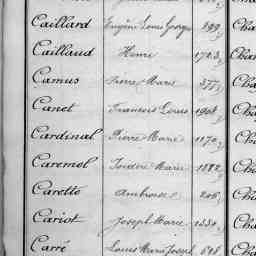 Caillard Eugène Louis Georges 899 Cha
Caillaud Henri 1723 Cha
Camus Pierre Marie Cha
Canet François Louis Cha
Cardinal Pierre Marie 1170 Cha
Caremol Isidore Marie 1882 Cha
Caretto Ambroise 205 Cha
Cariot Joseph Marie Cha
Carré Louis Marie Joseph Cha